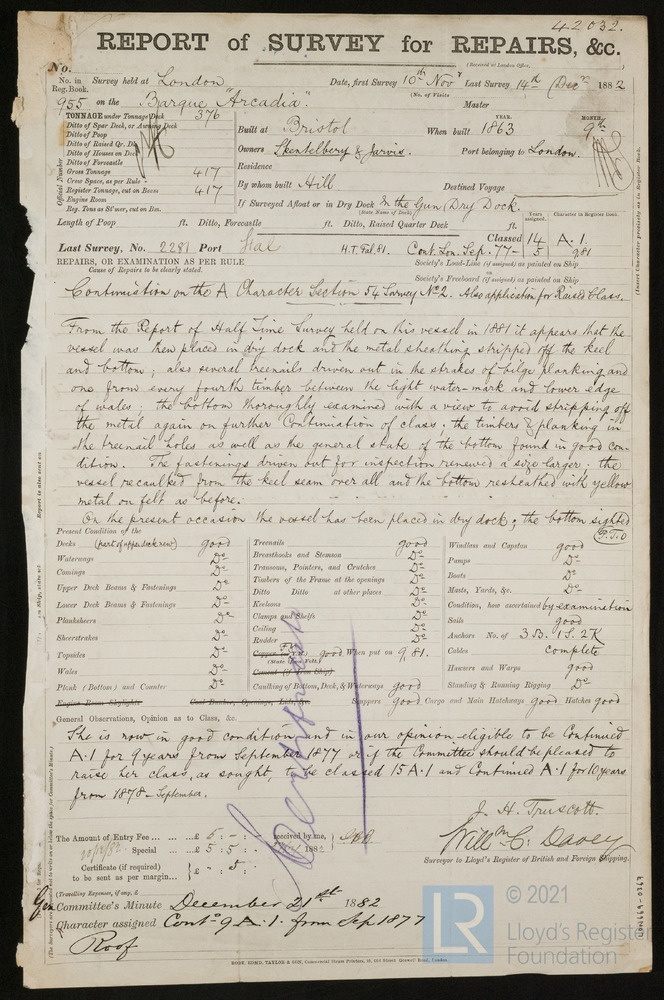 42032.
REPORT of SURVEY for REPAIRS, &c.
(Received at London Office,
No.
No. in Reg. Book. Survey held at London Date, first Survey 10th Novr Last Survey 14th Decr 1882
(No. of Visits
955 on the Barque "Arcadia". Master
TONNAGE under Tonnage Deck 376
Ditto of Spar Deck, or Awning Deck
Ditto of Poop
Ditto of Raised Qr. Dk
Ditto of Houses on Deck
Ditto of Forecastle
Gross Tonnage 417
Crew Space, as per Rule
Register Tonnage, cut on Beam 417
Engine Room
Reg. Tons as St'mer, cut on Bm.
Official Number
YEAR. MONTH.
Built at Bristol When built 1863 9th
Owners Skentelbery & Jarvis. Port belonging to London.
Residence
By whom built Hill Destined Voyage
If Surveyed Afloat or in Dry Dock In the Gun Dry Dock.
(State Name of Dock)
Length of Poop ft. Ditto, Forecastle ft. Ditto, Raised Quarter Deck ft.
Years assigned. Character in Register Book.
Last Survey, No. 2281 Port Fal H.T. Fal. 81. Classed 14 A. 1.
Cont. Lon. Sep. 77 - 5 9,81
REPAIRS, OR EXAMINATION AS PER RULE
Cause of Repairs to be clearly stated.
Society's Load-Line (if assigned) as painted on Ship
Society's Freeboard (if assigned) as painted on Ship
Continuation on the A Character Section 54 Survey No 2. Also application for Raised Class.
From the Report of Half Time Survey held on this vessel in 1881 it appears that the
vessel was then placed in dry dock and the metal sheathing stripped off the keel
and bottom; also several treenails driven out in the strakes of bilge planking and
one from every fourth timber between the light water-mark and lower edge
of wales; the bottom thoroughly examined with a view to avoid stripping off
the metal again on further Continuation of class; the timbers & planking in
the treenail holes as well as the general state of the bottom found in good con-
dition. The fastenings driven out for inspection renewed a size larger; the
vessel recaulked from the keel seam over all and the bottom resheathed with yellow
metal on felt as before.
On the present occasion the vessel has been placed in dry dock; the bottom sighted
P.T.O
Present Condition of the
Decks (part of upper deck new) good
Waterways Do
Comings Do
Upper Deck Beams & Fastenings Do
Lower Deck Beams & Fastenings Do
Planksheers Do
Sheerstrakes Do
Topsides Do
Wales Do
Plank (Bottom) and Counter Do
Engine Room Skylights
Treenails good
Breasthooks and Stemson Do
Transoms, Pointers, and Crutches Do
Timbers of the Frame at the openings Do
Ditto Ditto at other places Do
Keelsons Do
Clamps and Shelfs Do
Ceiling Do
Rudder Do
good When put on 9,81.
Caulking of Bottom, Deck, & Waterways good
Coal Bunker, Openings, Lids, &c.
Scuppers good Cargo and Main Hatchways good Hatches good
Windlass and Capstan good
Pumps Do
Boats Do
Masts, Yards, &c. Do
Condition, how ascertained by examination
Sails good
Anchors No. of 3B. 1S. 2K
Cables complete
Hawsers and Warps good
Standing & Running Rigging Do
General Observations, Opinion as to Class, &c.
She is now in good condition and in our opinion eligible to be Continued
A.1 for 9 years from September 1877 or if the Committee should be pleased to
raise her class, as sought, to be classed 15 A.1 and Continued A.1 for 10 years
from 1878 - September.
J. H. Truscott.
Willm C. Davey
Surveyor to Lloyd's Register of British and Foreign Shipping.
The Amount of Entry Fee ... £ 6 : - : received by me,
Special ... £ 5 : 5 : 188
Certificate (if required) £ - : 5 :
to be sent as per margin...
(Travelling Expenses, if any, £
Committee's Minute December 21st 1882
Character assigned Contd 9 A.1. from Sep 1877
Roof
Certificate
LR
© 2021
Lloyd's Register
Foundation